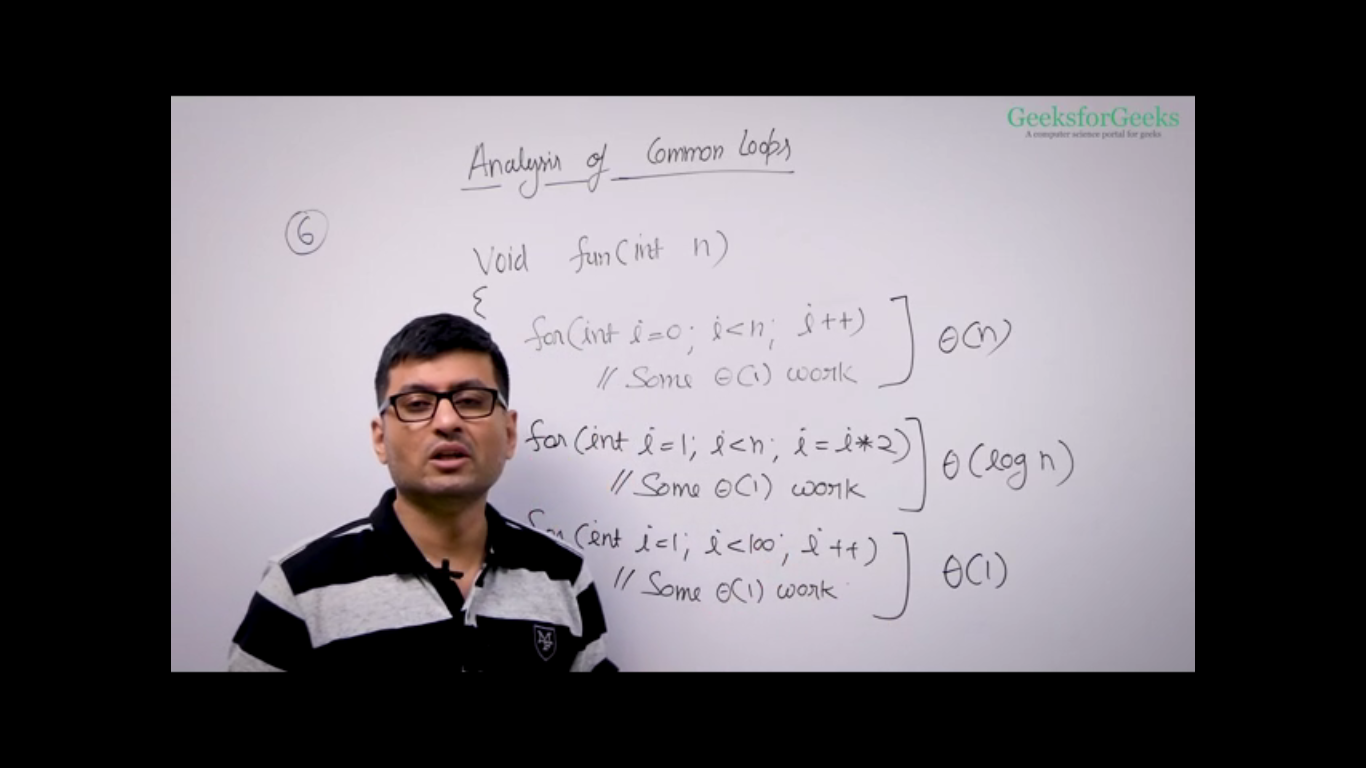 GeeksforGeeks
A computer science portal for geeks
Analysis of Common Loops
6
Void fun(int n)
{
for(int i=0; i<n; i++)
// Some θ(1) work
θ(n)
for(int i=1; i<n; i=i*2)
// Some θ(1) work
θ(log n)
for(int i=1; i<100; i++)
// Some θ(1) work
θ(1)